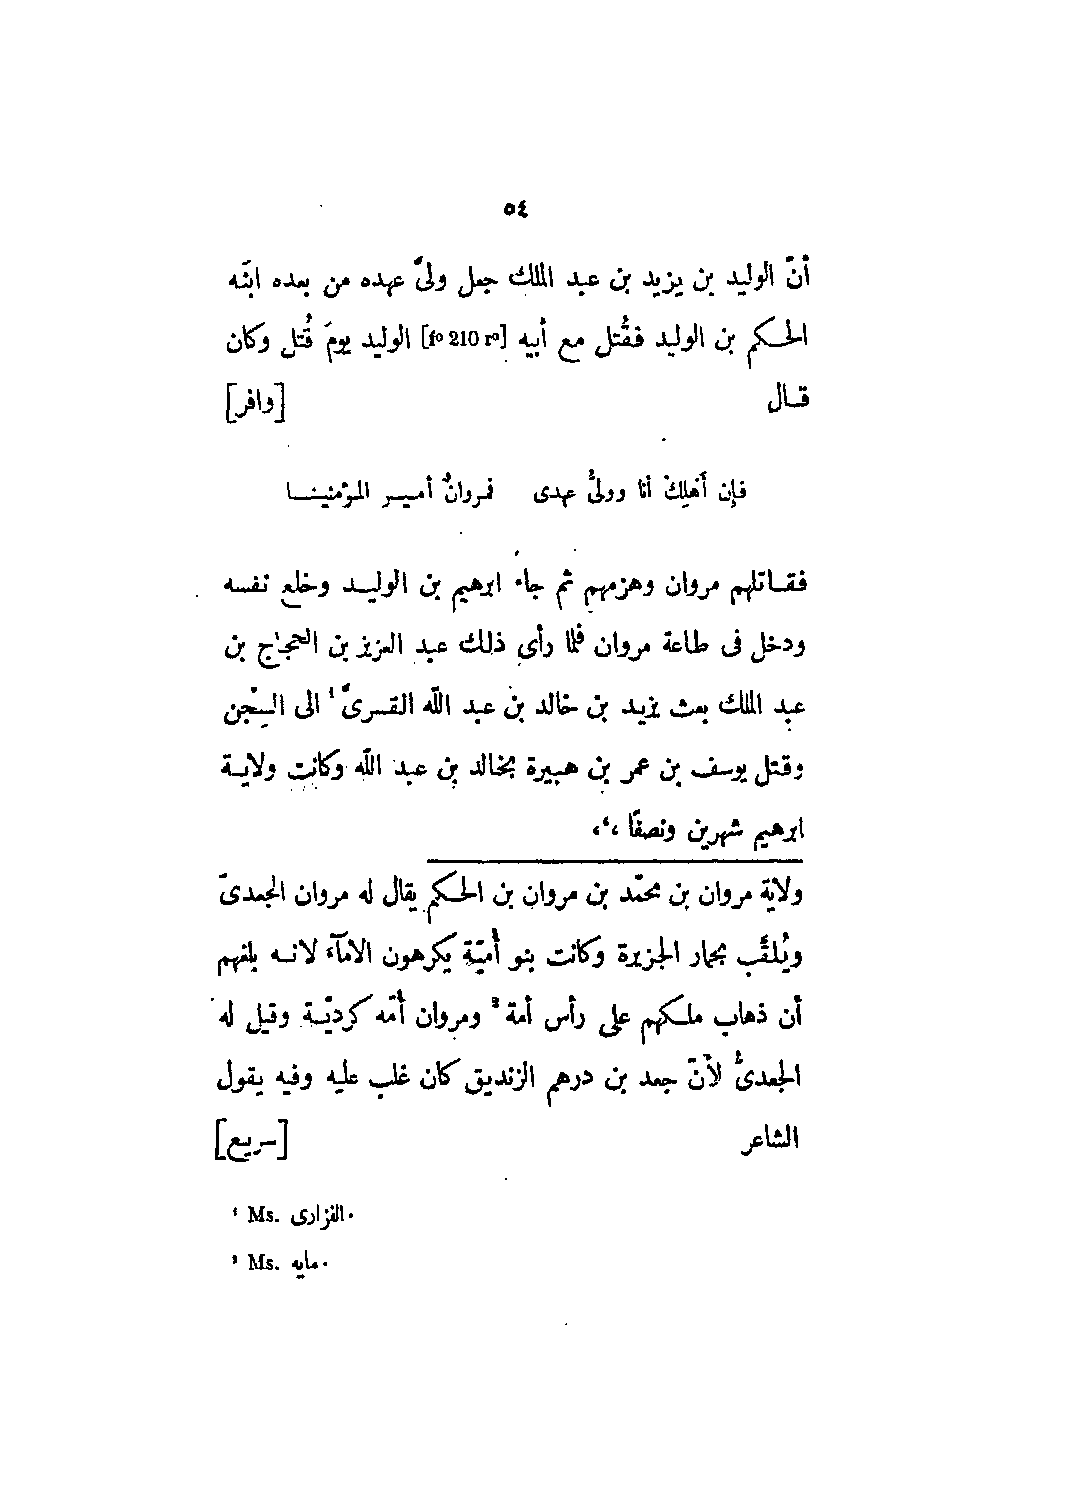 ٥٤
أنّ الوليد بن يزيد بن عبد الملك جعل ولىّ عهده من بعده ابنَه
الحكم بن الوليد فقُتل مع أبيه [fo 210 ro] الوليد يومَ قُتل وكان
قال [وافر]
فإن أَهلِكْ أنا وولىُّ عهدى فمروانُ أمير المؤمنينا
فقاتلهم مروان وهزمهم ثم جاء ابرهيم بن الوليد وخلع نفسه
ودخل فى طاعة مروان فلمّا رأى ذلك عبد العزيز بن الحجّاج بن
عبد الملك بعث يزيد بن خالد بن عبد اللّه القسرىّ¹ الى السِجْن
وقتل يوسف بن عمر بن هبيرة بخالد بن عبد اللّه وكانت ولاية
ابرهيم شهرين ونصفًا ،'،
ولاية مروان بن محمّد بن مروان بن الحكم يقال له مروان الجعدىّ
ويُلقَّب بحمار الجزيرة وكانت بنو أُميّة يكرهون الامآء لانه بلغهم
أن ذهاب ملكهم على رأس أمة² ومروان أُمّه كرديّة وقيل له
الجعدىُّ لأنّ جعد بن درهم الزنديق كان غلب عليه وفيه يقول
الشاعر [سريع]
¹ Ms. الفزارى.
² Ms. مايه.